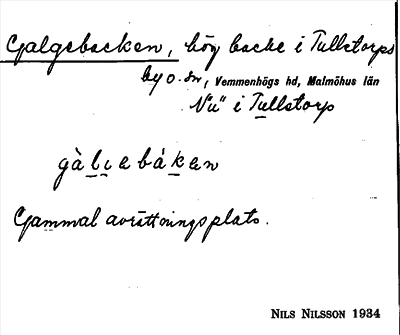 Galgebacken, hög backe i Tullstorps
by o. sn, Vemmenhögs hd, Malmöhus län
N:o 11 i Tullstorp
gàlɩebáken
Gammal avrättningsplats.
NILS NILSSON 1934